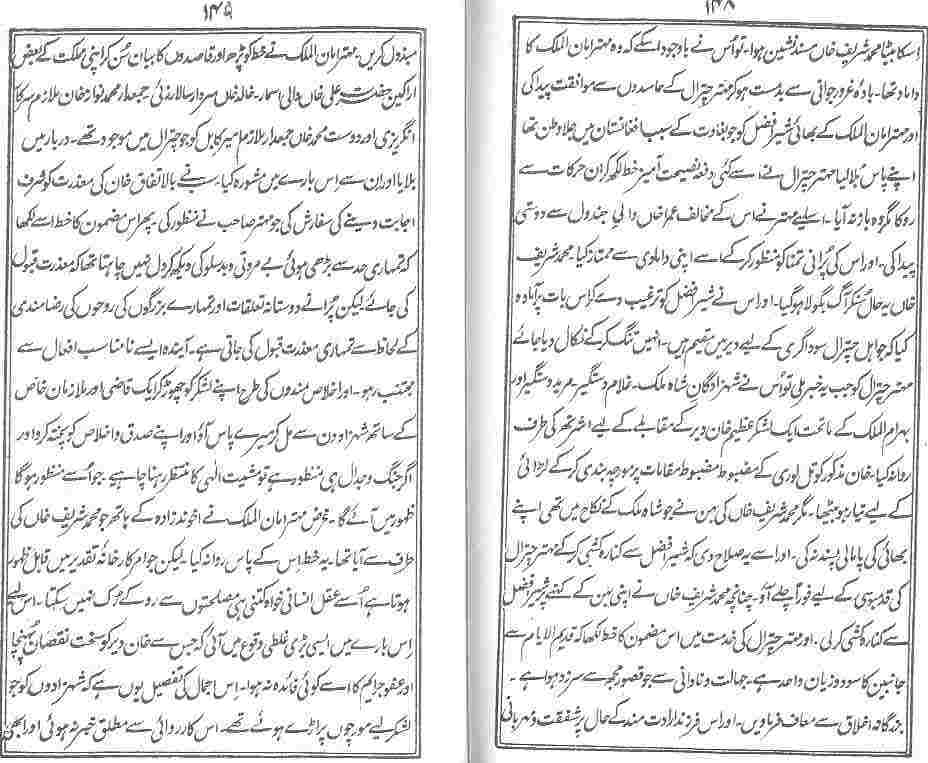 ۱۴۸
اسکا بیٹا محمد شریف خاں مسند نشین ہوا۔ تو اُس نے باوجود اسکے کہ وہ مہتر امان الملک کا
داماد تھا۔ بادۂ غرور جوانی سے بدمست ہو کر مہتر چترال کے حاسدوں سے موافقت پیدا کی
اور مہتر امان الملک کے بھائی شیر افضل کو جو بغاوت کے سبب افغانستان میں جلا وطن تھا
اپنے پاس بلا لیا مہتر چترال نے اسے کئی دفعہ نصیحت آمیز خط لکھ کر ان حرکات سے
روکا مگر وہ باز نہ آیا۔ اسلیے مہتر نے اس کے مخالف عمرا خاں والیِ جندول سے دوستی
پیدا کی۔ اور اس کی پُرانی تمنا کو منظور کر کے اسے اپنی دامادی سے ممتاز کیا۔ محمد شریف
خاں یہ حال سُنکر آگ بگولا ہو گیا۔ اور اس نے شیر افضل کو ترغیب دے کر اس بات پر آمادہ
کیا کہ جو اہل چترال سوداگری کے لیے دیر میں مقیم ہیں۔ انہیں تنگ کر کے نکال دیا جائے
مہتر چترال کو جب یہ خبر ملی تو اُس نے شہزادگان شاہ ملک۔ غلام دستگیر۔ مرید دستگیر اور
بہرام الملک کے ماتحت ایک لشکر عظیم خان دیر کے مقابلے کے لیے اشرتھ کی طرف
روانہ کیا۔ خان مذکور کوتل لوری کے مضبوط مضبوط مقامات پر مورچہ بندی کر کے لڑائی
کے لیے تیار ہو بیٹھا۔ مگر محمد شریف خاں کی بہن نے جو شاہ ملک کے نکاح میں تھی اپنے
بھائی کی پامالی پسند نہ کی۔ اور اسے یہ صلاح دی کہ شیر افضل سے کنارہ کشی کر کے مہتر چترال
کی قدمبوسی کے لیے فوراً چلے آؤ۔ چنانچہ محمد شریف خاں نے اپنی بہن کے کہنے پر شیر افضل
سے کنارہ کشی کر لی۔ اور مہتر چترال کی خدمت میں اس مضمون کا خط لکھا کہ قدیم الایام سے
جانبین کا سود و زیان واحد ہے۔ جہالت و نادانی سے جو قصور مجھ سے سرزد ہوا ہے۔
بزرگانہ اخلاق سے معاف فرماویں۔ اور اس فرزند ارادت مند کے حال پر شفقت و مہربانی
۱۴۵
مبذول کریں۔ مہتر امان الملک نے خط کو پڑھ اور قاصدوں کا بیان سُن کر اپنی مملکت کے بعض
اراکین حضرت علی خاں والی اسمار۔ خالد خاں سردار سالارزئی۔ جمعدار محمد نواز خان ملازم سرکار
انگریزی اور دوست محمد خاں جمعدار ملازم میر کابل کو جو چترال میں موجود تھے۔ دربار میں
بلایا اور ان سے اس بارے میں مشورہ کیا۔ سب نے بالاتفاق خان کی معذرت کو شرف
اجابت دینے کی سفارش کی جو مہتر صاحب نے منظور کی۔ پھر اس مضمون کا خط اسے لکھا
کہ تمہاری حد سے بڑھی ہوئی بے مروتی و بدسلوکی دیکھ کر دل نہیں چاہتا تھا کہ معذرت قبول
کی جائے لیکن پُرانے دوستانہ تعلقات اور تمہارے بزرگوں کی روحوں کی رضامندی
کے لحاظ سے تمہاری معذرت قبول کی جاتی ہے۔ آیندہ ایسے نامناسب افعال سے
مجتنب رہو۔ اور اخلاص مندوں کی طرح اپنے لشکر کو چھوڑ کر ایک قاضی اور ملازمان خاص
کے ساتھ شہزادوں سے مل کر میرے پاس آؤ اور اپنے صدق و اخلاص کو پختہ کرو اور
اگر جنگ و جدال ہی منظور ہے تو مشیت الٰہی کا منتظر رہنا چاہیے۔ جو اُسے منظور ہوگا
ظہور میں آئے گا۔ غرض مہتر امان الملک نے اخوند زادہ کے ہاتھ جو محمد شریف خاں کی
طرف سے آیا تھا۔ یہ خط اس کے پاس روانہ کیا۔ لیکن جو امر کارخانۂ تقدیر میں قابل ظہور
ہوتا ہے اُسے عقل انسانی خواہ کتنی ہی مصلحتوں سے روکے رُک نہیں سکتا۔ اس لیے
اِس بارے میں ایسی بڑی غلطی وقوع میں آئی کہ جس سے خان دیر کو سخت نقصان پہنچا
اور عفو جرایم کا اسے کوئی فائدہ نہ ہوا۔ اِس اجمال کی تفصیل یوں ہے کہ شہزادوں کو جو
لشکر لیے مورچوں پر اڑے ہوئے تھے۔ اس کارروائی سے مطلق خبر نہ ہوئی اور ابھی